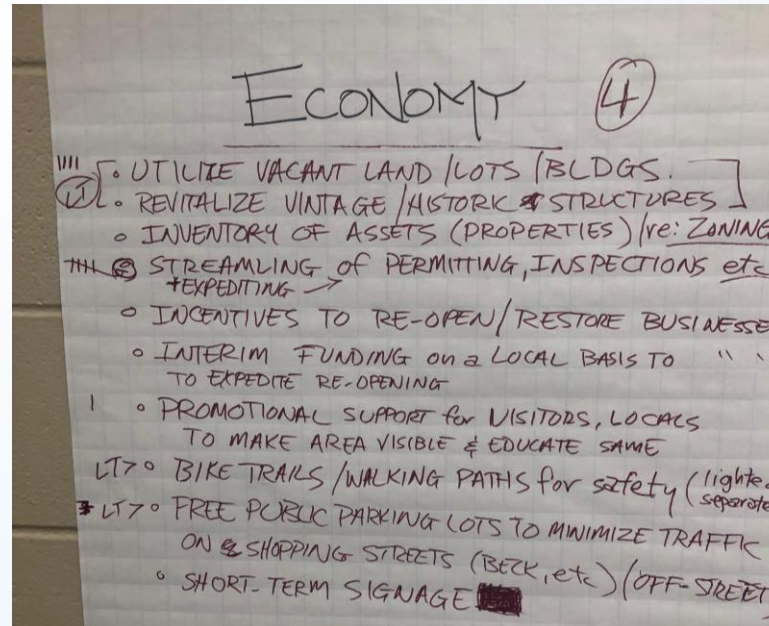 ECONOMY 4
• UTILIZE VACANT LAND / LOTS / BLDGS.
LT • REVITALIZE VINTAGE / HISTORIC STRUCTURES
• INVENTORY OF ASSETS (PROPERTIES) / re: ZONING
STREAMLING of PERMITTING, INSPECTIONS etc
+EXPEDITING →
• INCENTIVES TO RE-OPEN / RESTORE BUSINESSE
• INTERIM FUNDING on a LOCAL BASIS TO " "
TO EXPEDITE RE-OPENING
• PROMOTIONAL SUPPORT for VISITORS, LOCALS
TO MAKE AREA VISIBLE & EDUCATE SAME
LT> • BIKE TRAILS / WALKING PATHS for safety (lighted
separate
* LT> • FREE PUBLIC PARKING LOTS TO MINIMIZE TRAFFIC
ON SHOPPING STREETS (BECK, etc) / (OFF-STREET
• SHORT-TERM SIGNAGE